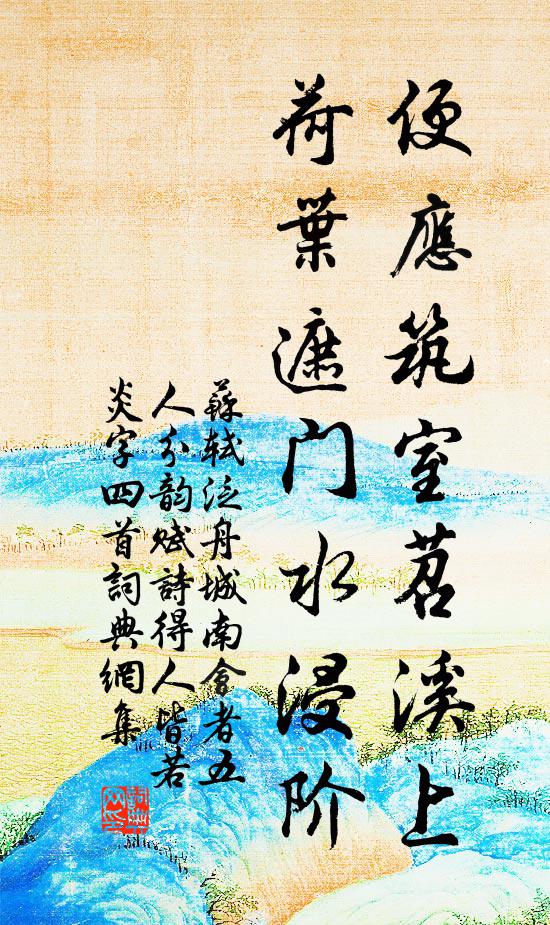 便應筑室苕溪上
荷葉遮門水浸阶
蘇軾泛舟城南會者五
人分韵赋詩得人皆若
炎字四首詞典網集